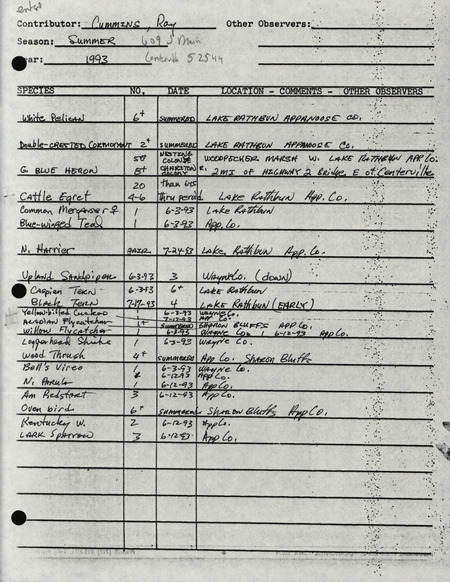 enter
Contributor: CUMMINS, Ray Other Observers:
Season: SUMMER 609 S Main
Year: 1993 Centerville 52544
SPECIES NO. DATE LOCATION - COMMENTS - OTHER OBSERVERS
White Pelican 6+ SUMMERED LAKE RATHBUN APPANOOSE CO.
Double-crested Cormorant 2+ SUMMERED LAKE RATHBUN APPANOOSE Co.
50 NESTING COLONIE WOODPECKER MARSH W. LAKE RATHBUN APP Co.
G. BLUE HERON 5+ CHARITON R. COLONY 2 MI OF HIGHWAY 2 Bridge E of Centerville
20 than
Cattle Egret 4-6 thru period Lake Rathbun App. Co.
Common Merganser ♀ 1 6-3-93 Lake Rathbun
Blue-winged Teal 1 6-3-93 App Co.
N. Harrier PAIR 7-24-93 Lake Rathbun App Co.
Upland Sandpiper 6-3-93 3 Wayne Co. (DOWN)
Caspian Tern 6-3-93 6+ LAKE Rathbun
Black Tern 7-17-93 4 LAKE Rathbun (EARLY)
Yellow-billed Cuckoo 1 6-3-93 Wayne Co.
7-17-93 App Co.
Acadian Flycatcher 1+ SUMMERED SHARON BLUFFS APP Co.
Willow Flycatcher 1 6-3-93 WAYNE CO. 1 6-12-93 App Co.
Loggerhead Shrike 1 6-3-93 Wayne Co.
Wood Thrush 4+ SUMMERED App Co. Sharon Bluffs
Bell's Vireo 1 6-3-93 Wayne Co.
6-12-93 App Co.
N. Parula 1 6-12-93 App Co.
Am Redstart 3 6-12-93 App Co.
Oven bird 6+ SUMMERED Sharon Bluffs App Co.
Kentucky W. 2 6-12-93 App Co.
LARK Sparrow 3 6-12-93 App Co.